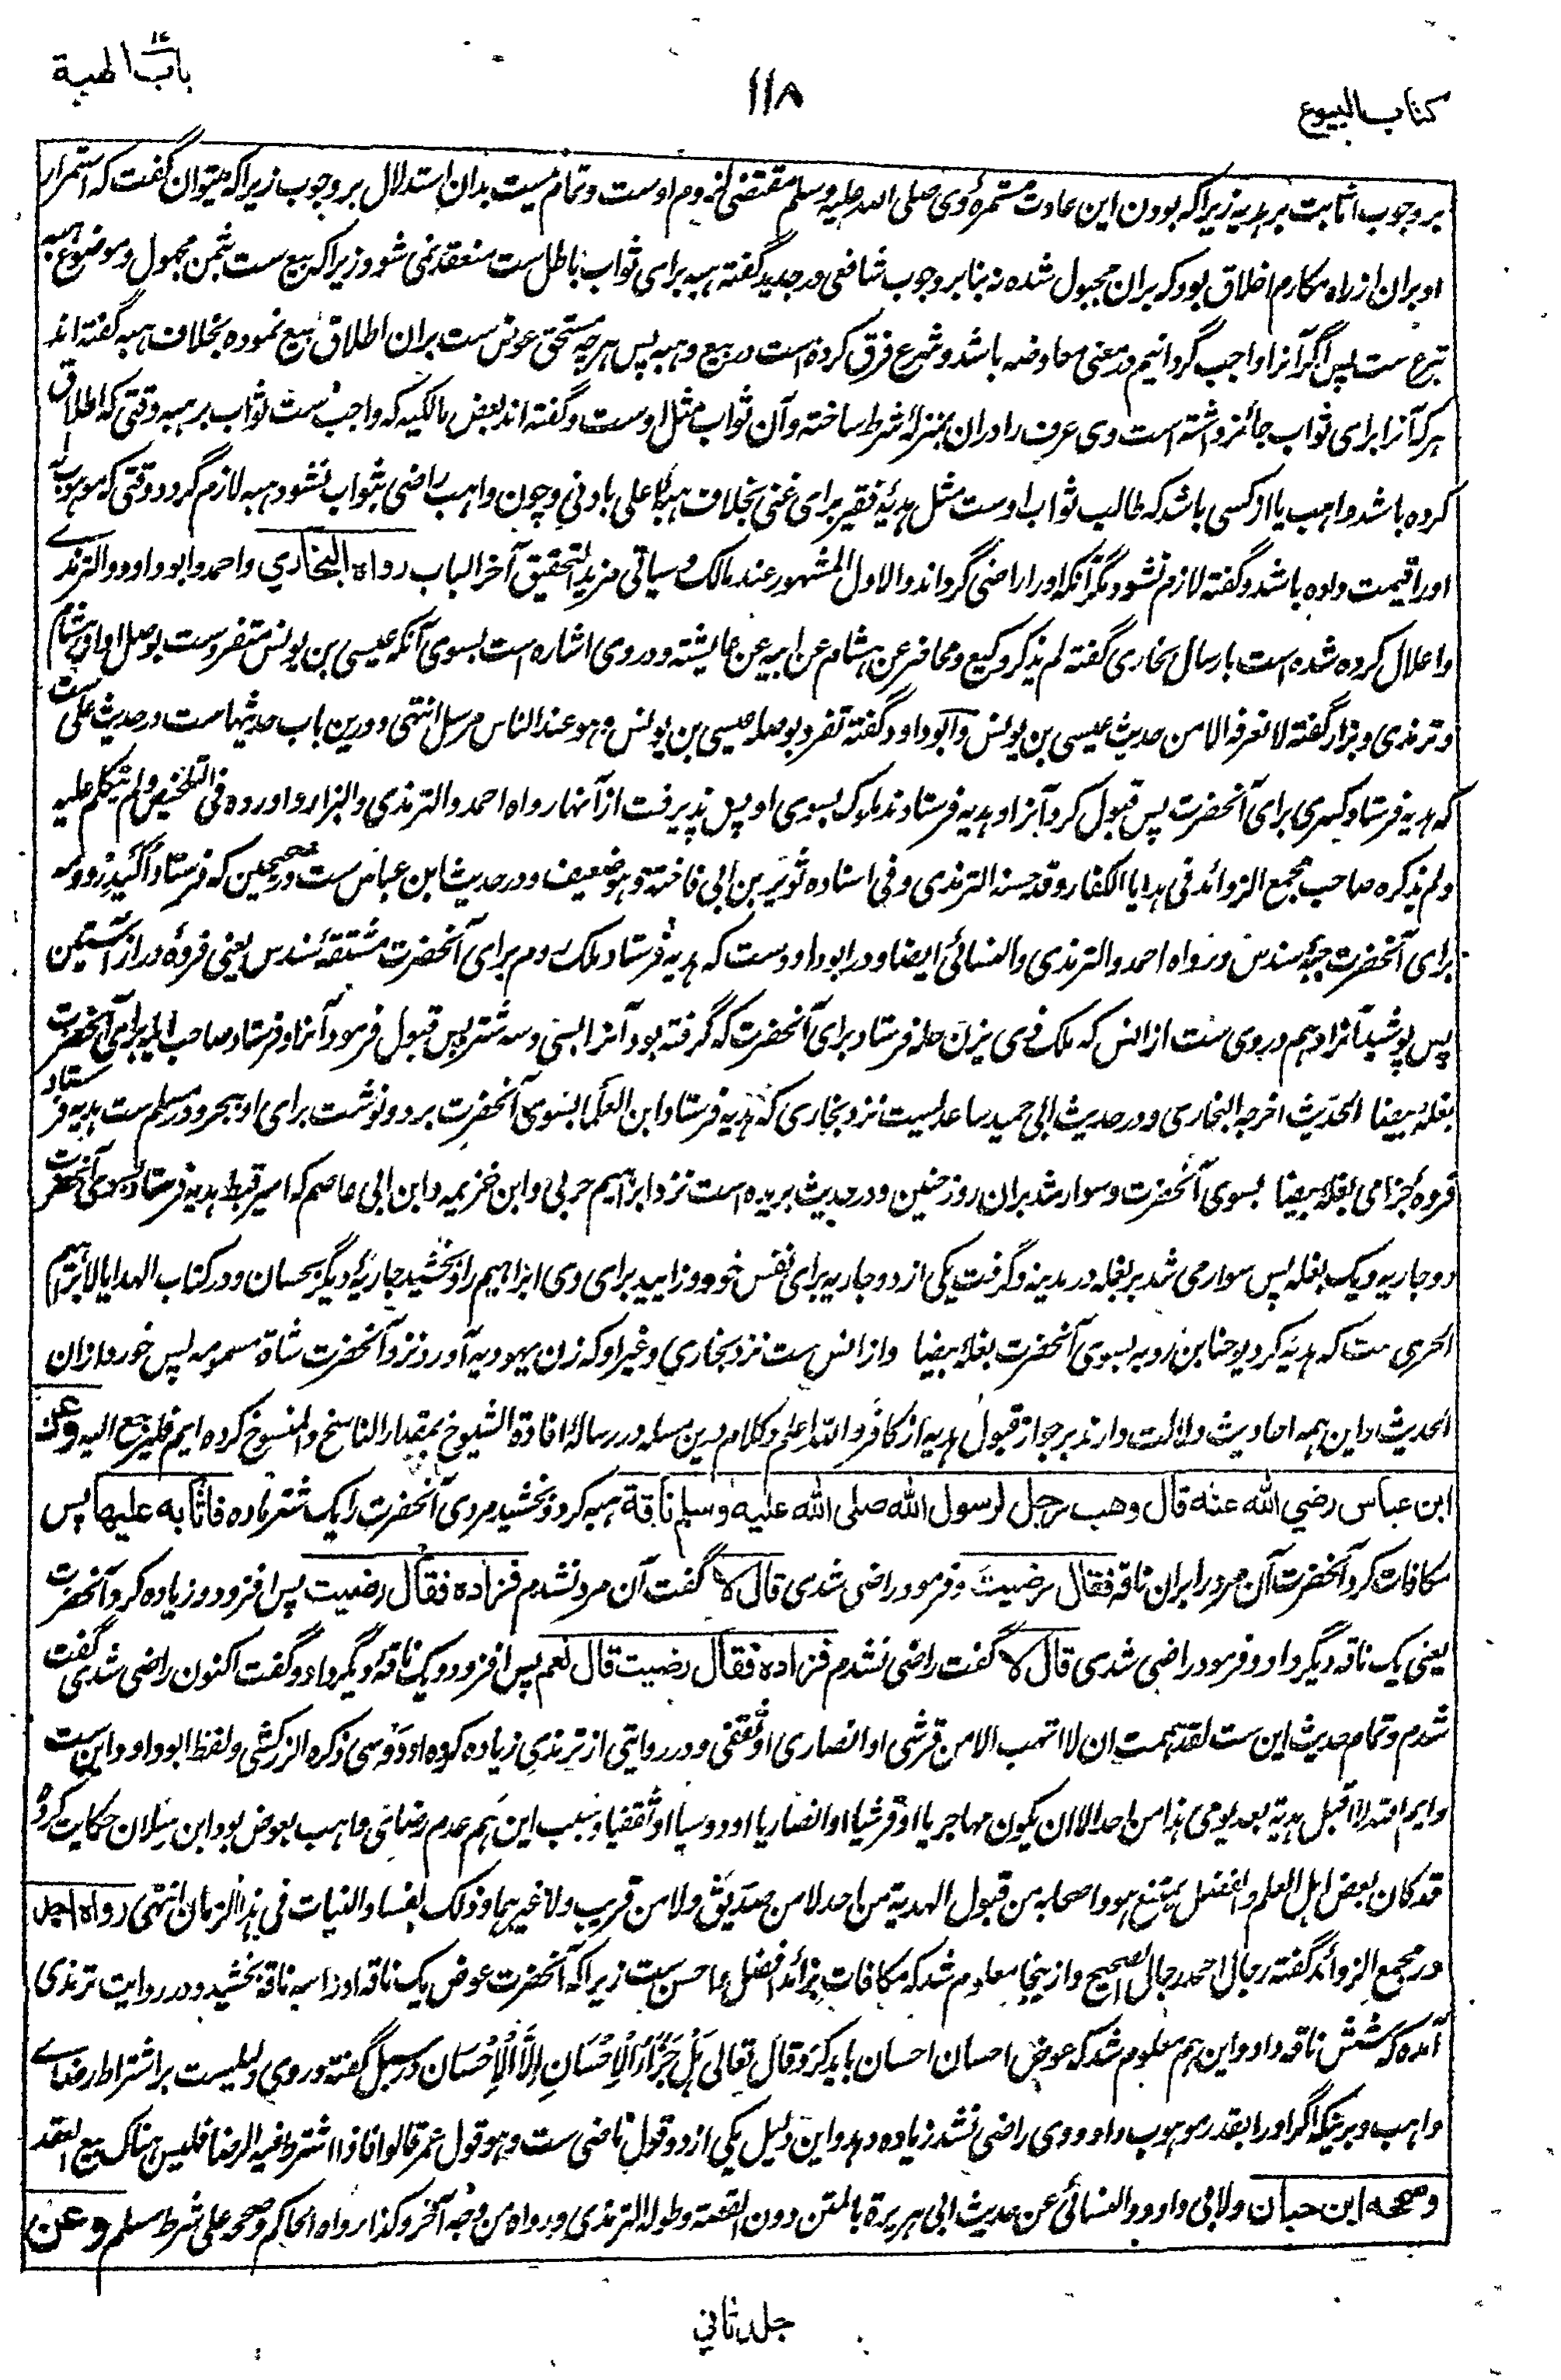 کتاب البیوع
۱۱۸
باب الهبة
بر وجوب اثابت بر ہدیہ زیرا کہ بودن این عادت مستمرۂ وی صلی اللہ علیہ وسلم مقتضی لزوم اوست وتمام نیست بدان استدلال بر وجوب زیرا کہ میتوان گفت کہ استمرار
او بران از راہ مکارم اخلاق بود کہ بران مجبول شدہ نہ بنا بر وجوب شافعی در جدید گفتہ ہبہ برای ثواب باطل ست منعقد نمی شود زیرا کہ بیع ست بثمن مجہول وموضوع ہبہ
تبرع ست پس اگر آنرا واجب گردانیم در معنی معاوضہ باشد وشرع فرق کردہ است در بیع وہبہ پس ہر چہ مستحق عوض ست بران اطلاق بیع نمودہ بخلاف ہبہ گفتہ اند
ہر کہ آنرا برای ثواب جائز داشتہ است وی عرف را دران بمنزلۂ شرط ساختہ وآن ثواب مثل اوست وگفتہ اند بعض مالکیہ کہ واجب ست ثواب بر ہبہ وقتی کہ اطلاق
کردہ باشد واہب یا از کسی باشد کہ طالب ثواب اوست مثل ہدیۂ فقیر برای غنی بخلاف ہبۂ اعلی بادنی وچون واہب راضی بثواب نشود ہبہ لازم گردد وقتی کہ موہوب لہ
او را قیمت دادہ باشد وگفتہ لازم نشود مگر آنکہ او را راضی گرداند والاول المشہور عند مالک وسیاتی مزید التحقیق آخر الباب رواه البخاري واحمد وابو داود والترمذے
واعلال کردہ شدہ است بارسال بخاری گفتہ لم یذکر وکیع ومحاضر عن ہشام عن ابیہ عن عایشتہ ودر وی اشارہ است بسوی آنکہ عیسی بن یونس متفرد ست بوصل او از ہشام
وترمذی وبزار گفتہ لا نعرفہ الا من حدیث عیسی بن یونس وابو داود گفتہ تفرد بوصلہ عیسی بن یونس وہو عند الناس مرسل انتہی ودرین باب حدیثہاست در حدیث علی ست
کہ ہدیہ فرستاد کسری برای آنحضرت پس قبول کرد آنرا وہدیہ فرستادند ملوک بسوی او پس پذیرفت از آنہا رواہ احمد والترمذی والبزار واوردہ فی التلخیص ولم یتکلم علیہ
ولم یذکرہ صاحب مجمع الزوائد فی ہدایا الکفار وقد حسنہ الترمذی وفی اسنادہ ثویر بن ابی فاختہ وہو ضعیف ودر حدیث ابن عباس ست در صحیحین کہ فرستاد اکیدر دومہ
برای آنحضرت جبۂ سندس ورواہ احمد والترمذی والنسائی ایضا ودر ابو داود ست کہ ہدیہ فرستاد ملک روم برای آنحضرت مشتقۂ سندس یعنی فروۂ دراز آستین
پس پوشید آنرا وہم در وی ست از انس کہ ملک ذی یزن حلہ فرستاد برای آنحضرت کہ گرفتہ بود آنرا بسی وسہ شتر پس قبول فرمود آنرا وفرستاد صاحب ایلہ برای آنحضرت
بغلۂ بیضا الحدیث اخرجہ البخاری ودر حدیث ابی حمید ساعدی ست نزد بخاری کہ ہدیہ فرستاد ابن العلما بسوی آنحضرت برد ونوشت برای او ببحر ودر مسلم ست ہدیہ فرستاد
فروہ جذامی بغلۂ بیضا بسوی آنحضرت وسوار شد بران روز حنین ودر حدیث بریدہ است نزد ابراہیم حربی وابن خزیمہ وابن ابی عاصم کہ امیر قبط ہدیہ فرستاد بسوی آنحضرت
دو جاریہ ویک بغلہ پس سوار می شد بر بغلہ در مدینہ وگرفت یکی از دو جاریہ برای نفس خود وزایید برای وی ابراہیم را وبخشید جاریۂ دیگر بحسان ودر کتاب الہدایا لابراہیم
الحربی ست کہ ہدیہ کرد یوحنا بن روبہ بسوی آنحضرت بغلۂ بیضا واز انس ست نزد بخاری وغیر او کہ زن یہودیہ آورد نزد آنحضرت شاۃ مسمومہ پس خورد ازان
الحدیث واین ہمہ احادیث دلالت دارند بر جواز قبول ہدیہ از کافر واللہ اعلم وکلام درین مسلہ در رسالۂ افادۃ الشیوخ بمقدار الناسخ والمنسوخ کردہ ایم فلیرجع الیہ وعن
ابن عباس رضي الله عنه قال وهب رجل لرسول الله صلى الله عليه وسلم ناقة ہبہ کرد وبخشید مردی آنحضرت را یک شتر مادہ فاثابه علیها پس
مکافات کرد آنحضرت آن مرد را بران ناقہ فقال رضیت وفرمود راضی شدی قال لا گفت آن مرد نشدم فزاده فقال رضیت پس افزود وزیادہ کرد آنحضرت
یعنی یک ناقہ دیگر داد وفرمود راضی شدی قال لا گفت راضی نشدم فزاده فقال رضیت قال نعم پس افزود ویک ناقۂ دیگر داد وگفت اکنون راضی شدی گفت
شدم وتمام حدیث این ست لقد ہممت ان لا اتہب الا من قرشی او انصاری او ثقفی ودر روایتی از ترمذی زیادہ کردہ او دوسی ذکرہ الزرکشی ولفظ ابو داود این ست
وایم اللہ لا اقبل ہدیۃ بعد یومی ہذا من احد الا ان یکون مہاجریا او قرشیا او انصاریا او دوسیا او ثقفیا وسبب این ہم عدم رضای واہب بعوض بود ابن رسلان حکایت کردہ
قد کان بعض اہل العلم والفضل یمتنع ہو واصحابہ من قبول الہدیۃ من احد لا من صدیق ولا من قریب ولا غیرہما وذلک لفساد النیات فی ہذا الزمان انتہی رواه احمد
در مجمع الزوائد گفتہ رجال احمد رجال الصحیح وازینجا معلوم شد کہ مکافات بزائد افضل واحسن ست زیرا کہ آنحضرت عوض یک ناقہ او را سہ ناقہ بخشید ودر روایت ترمذی
آمدہ کہ شش ناقہ داد واین ہم معلوم شد کہ عوض احسان احسان باید کرد وقال تعالی هَلْ جَزَاءُ الْإِحْسَانِ إِلَّا الْإِحْسَانُ در سبل گفتہ ودر وی دلیلیست بر اشتراط رضاے
واہب وبر اینکہ اگر او را بقدر موہوب داد ووی راضی نشد زیادہ دہد واین دلیل یکی از دو قول ماضی ست وہو قول عمر قالوا فاذا اشترط فیہ الرضا فلیس ہناک بیع انعقد
وصححه ابن حبان ولابی داود والنسائی عن حدیث ابی ہریرۃ بالمتن دون القصۃ وطولہ الترمذی ورواہ من وجہ آخر وکذا رواہ الحاکم وصححہ علی شرط مسلم وعن
جلد ثاني